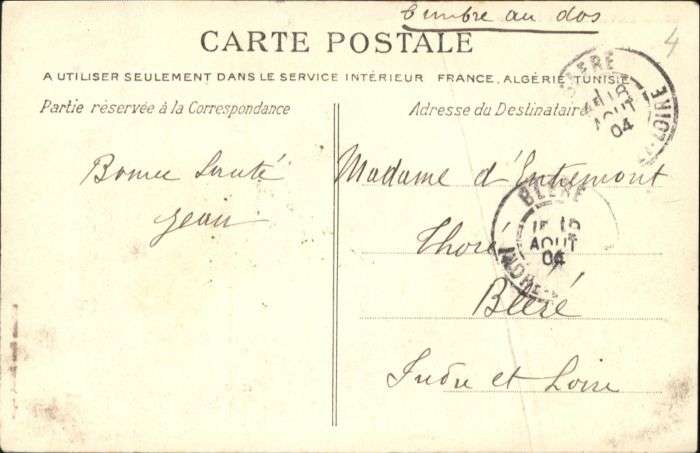 timbre au dos
4
CARTE POSTALE
A UTILISER SEULEMENT DANS LE SERVICE INTÉRIEUR FRANCE, ALGÉRIE TUNISIE
Partie réservée à la Correspondance
Adresse du Destinataire
Bonne Santé
Jean
Madame d'Entremont
Thoré
Bléré
Indre et Loire
BLÉRÉ
18
AOUT
04
BLÉRÉ
15
AOUT
04
INDRE